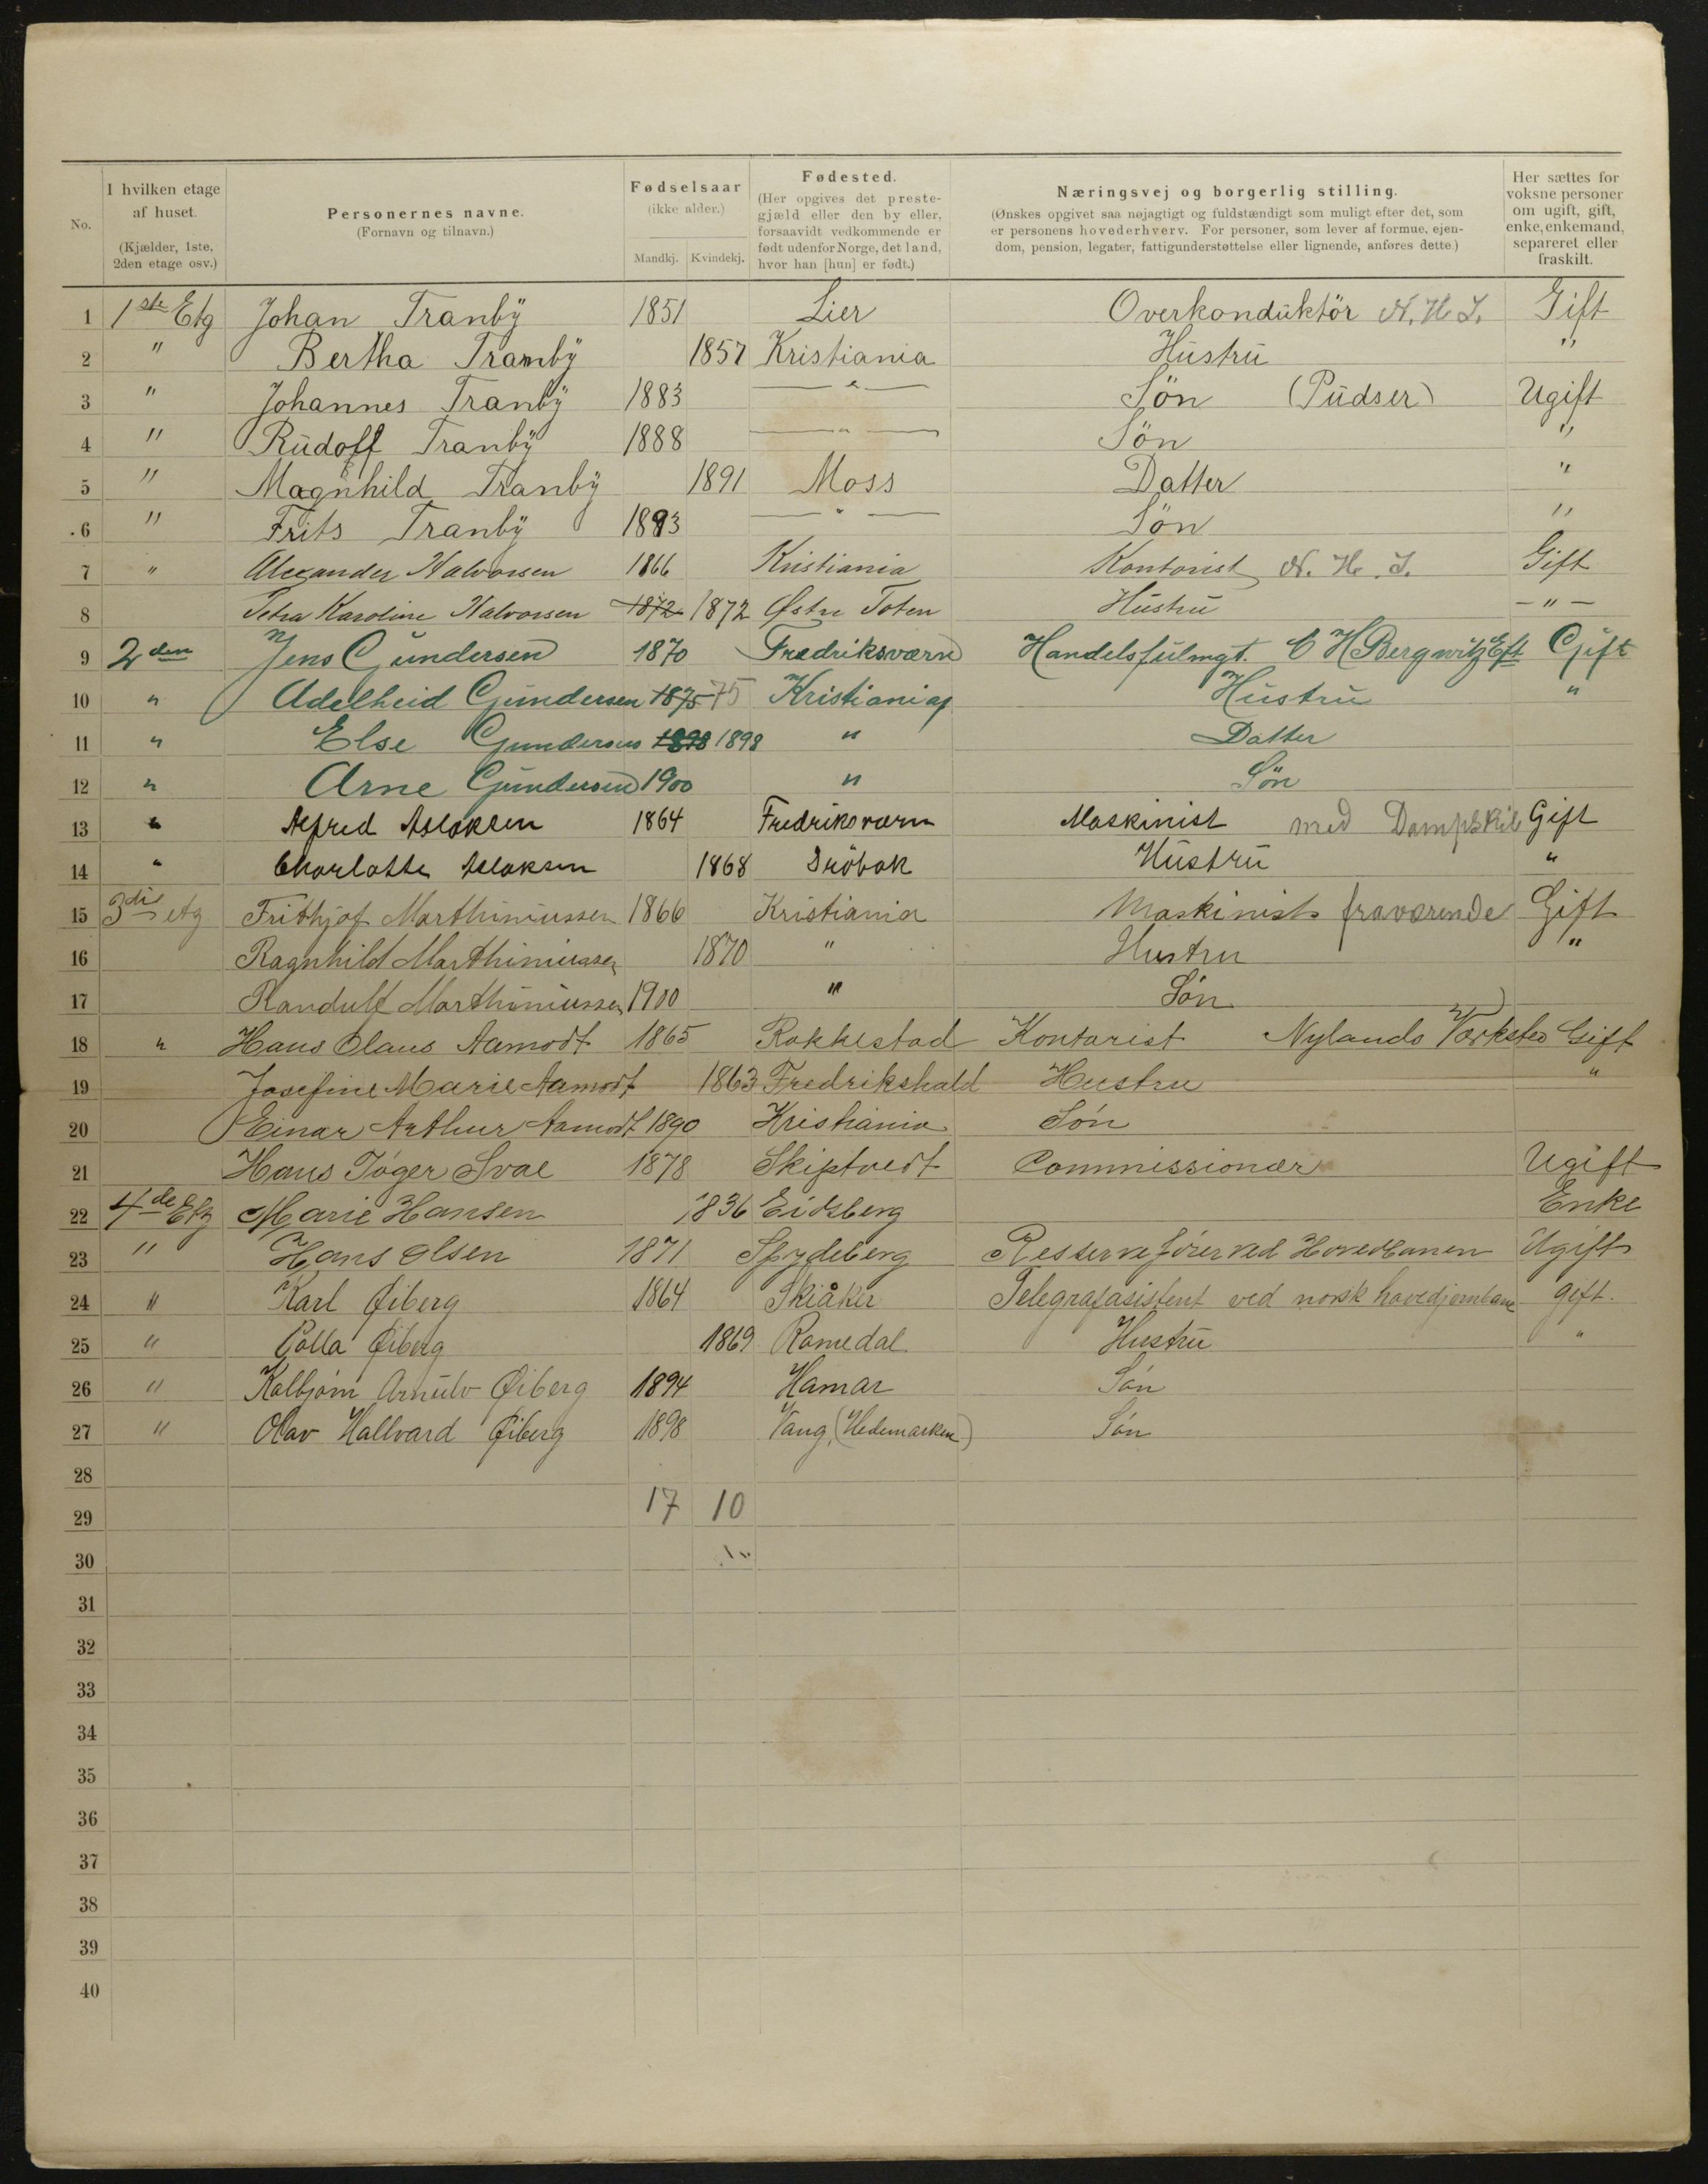 No. | I hvilken etage af huset. (Kjælder, 1ste, 2den etage osv.) | Personernes navne. (Fornavn og tilnavn.) | Fødselsaar (ikke alder.) Mandkj. Kvindekj. | Fødested. (Her opgives det prestegjæld eller den by eller, forsaavidt vedkommende er født udenfor Norge, det land, hvor han [hun] er født.) | Næringsvej og borgerlig stilling. (Ønskes opgivet saa nøjagtigt og fuldstændigt som muligt efter det, som er personens hovederhverv. For personer, som lever af formue, ejendom, pension, legater, fattigunderstøttelse eller lignende, anføres dette.) | Her sættes for voksne personer om ugift, gift, enke, enkemand, separeret eller fraskilt.
1 1ste Etg Johan Tranby 1851 Lier Overkonduktör N. H. J. Gift
2 " Bertha Tranby 1857 Kristiania Hustru "
3 " Johannes Tranby 1883 —"— Sön (Pudser) Ugift
4 " Rudolf Tranby 1888 —"— Sön "
5 " Magnhild Tranby 1891 Moss Datter "
6 " Frits Tranby 1893 —"— Sön "
7 " Alexander Halvorsen 1866 Kristiania Kontorist N. H. J. Gift
8 Petra Karoline Halvorsen 1872 1872 Østre Toten Hustru —"—
9 2den Jens Gundersen 1870 Fredriksværn Handelsfulmgt. C H Bergwitz Eft Gift
10 " Adelheid Gundersen 1875 75 Kristiania Hustru "
11 " Else Gundersen 1898 1898 " Datter
12 " Arne Gundersen 1900 " Sön
13 " Alfred Aslaksen 1864 Fredriksværn Maskinist med Dampskib Gift
14 " Charlotte Aslaksen 1868 Dröbak Hustru "
15 3die etg Frithjof Marthiniussen 1866 Kristiania Maskinist fraværende Gift
16 Ragnhild Marthiniussen 1870 " Hustru "
17 Randulf Marthiniussen 1900 " Søn
18 " Hans Olaus Aamodt 1865 Rakkestad Kontorist Nylands Værksted Gift
19 Josefine Marie Aamodt 1863 Fredrikshald Hustru "
20 Einar Arthur Aamodt 1890 Kristiania Søn
21 Hans Jøger Svae 1878 Skiptvedt Commissionær Ugift
22 4de Etg Marie Hansen 1836 Eidsberg Enke
23 " Hans Olsen 1871 Spydeberg Resserveförer ved Hovedbanen Ugift
24 " Karl Øiberg 1864 Skiåker Telegrafasistent ved norsk hovedjernbane gift.
25 " Polla Øiberg 1869 Romedal Hustru "
26 " Kolbjørn Arnulv Øiberg 1894 Hamar Søn
27 " Olav Hallvard Øiberg 1898 Vang (Hedemarken) Søn
28
29 17 10
30
31
32
33
34
35
36
37
38
39
40